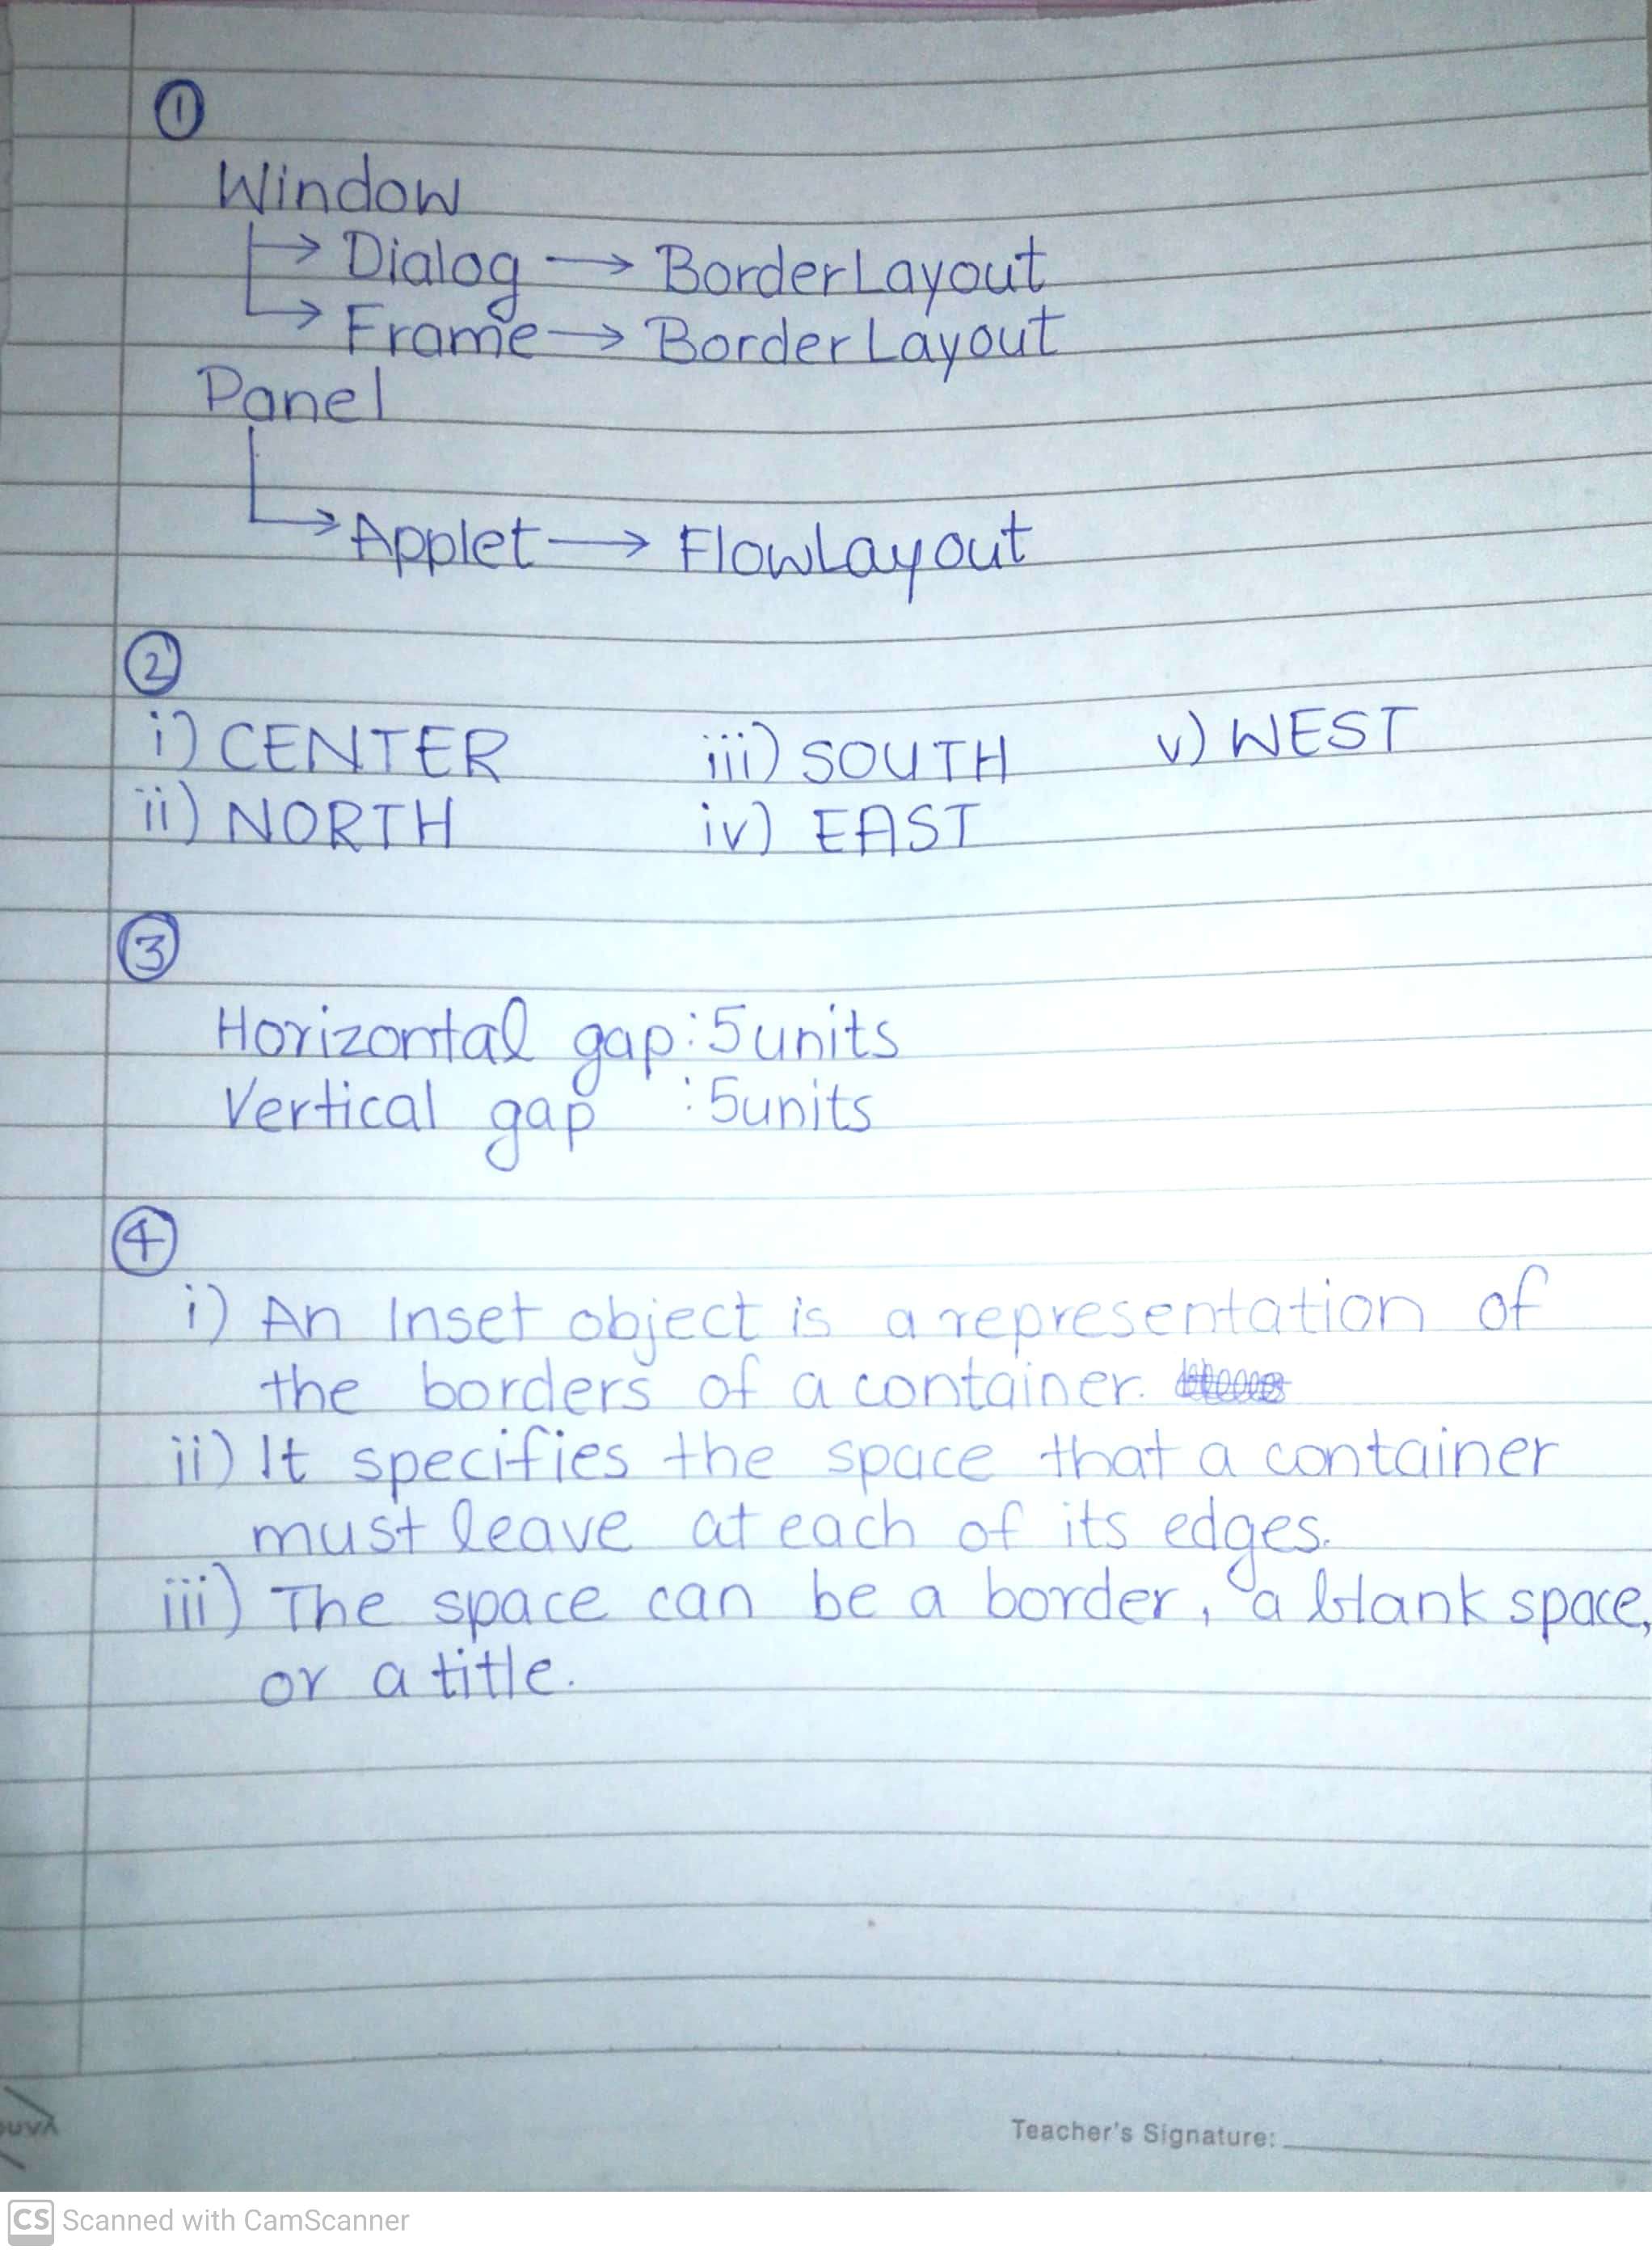 ①
Window
→ Dialog → BorderLayout
→ Frame → BorderLayout
Panel
→ Applet → FlowLayout
②
i) CENTER iii) SOUTH v) WEST
ii) NORTH iv) EAST
③
Horizontal gap : 5 units
Vertical gap : 5 units
④
i) An Inset object is a representation of
the borders of a container.
ii) It specifies the space that a container
must leave at each of its edges.
iii) The space can be a border, a blank space,
or a title.
Teacher's Signature:
CS Scanned with CamScanner